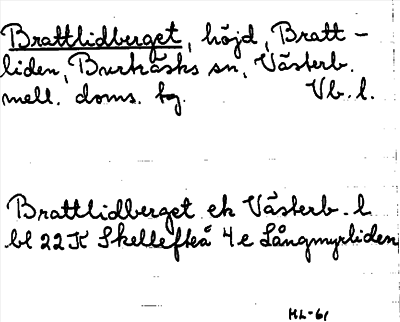 Brattlidberget, höjd, Bratt-
liden, Burträsks sn, Västerb.
mell. doms. hg. Vb. l.
Brattlidberget ek Västerb. l
bl 22K Skellefteå 4e Långmyrliden
HL-61